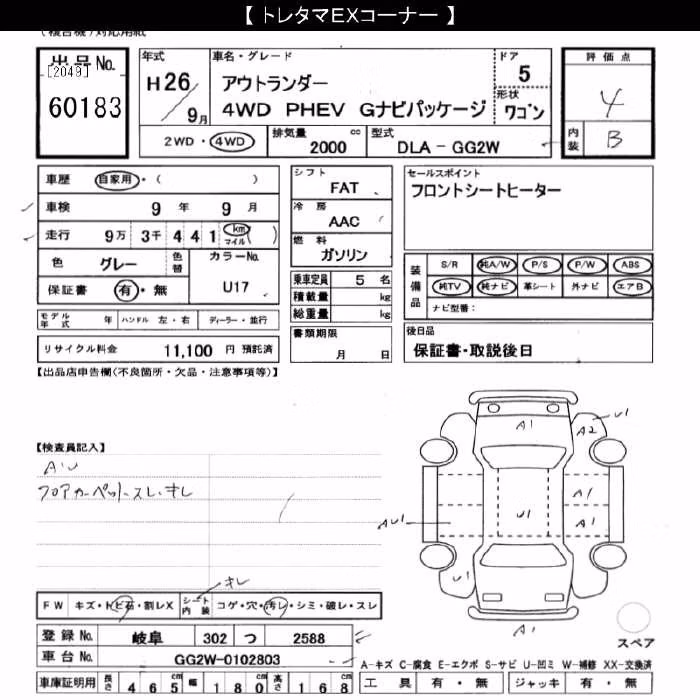 【 トレタマEXコーナー 】
(複合機)対応用紙
出品No.
[2049]
60183
年式
H26
9月
車名・グレード
アウトランダー
4WD PHEV Gナビパッケージ
ドア
5
形状
ワゴン
2WD・4WD
排気量 2000 cc
型式 DLA-GG2W
評価点
4
内装 B
車歴 自家用・( )
車検 9 年 9 月
走行 9万 3千 4 4 1 km マイル ( )
色 グレー 色替 カラーNo.
保証書 有・無 U17
モデル年式 年 ハンドル 左・右 ディーラー・並行
リサイクル料金 11,100 円 預託済
シフト
FAT
冷房
AAC
燃料
ガソリン
乗車定員 5 名
積載量 kg
総重量 kg
書類期限
月 日
セールスポイント
フロントシートヒーター
装備品
S/R 純A/W P/S P/W ABS
純TV 純ナビ 革シート 外ナビ エアB
ナビ型番:
後日品
保証書・取説後日
【出品店申告欄(不良箇所・欠品・注意事項等)】
【検査員記入】
AU
フロアカーペットスレ、キレ
A1
A2
U1
A1
A1
U1
AU1
U1
A1
キレ
FW キズ・トビ石・割レX シート内装 コゲ・穴・汚レ・シミ・破レ・スレ
登録No. 岐阜 302 つ 2588
車台No. GG2W-0102803
車庫証明用 長さ 465 cm 幅 180 cm 高さ 168 cm
スペア
A-キズ C-腐食 E-エクボ S-サビ U-凹ミ W-補修 XX-交換済
工具 有・無 ジャッキ 有・無